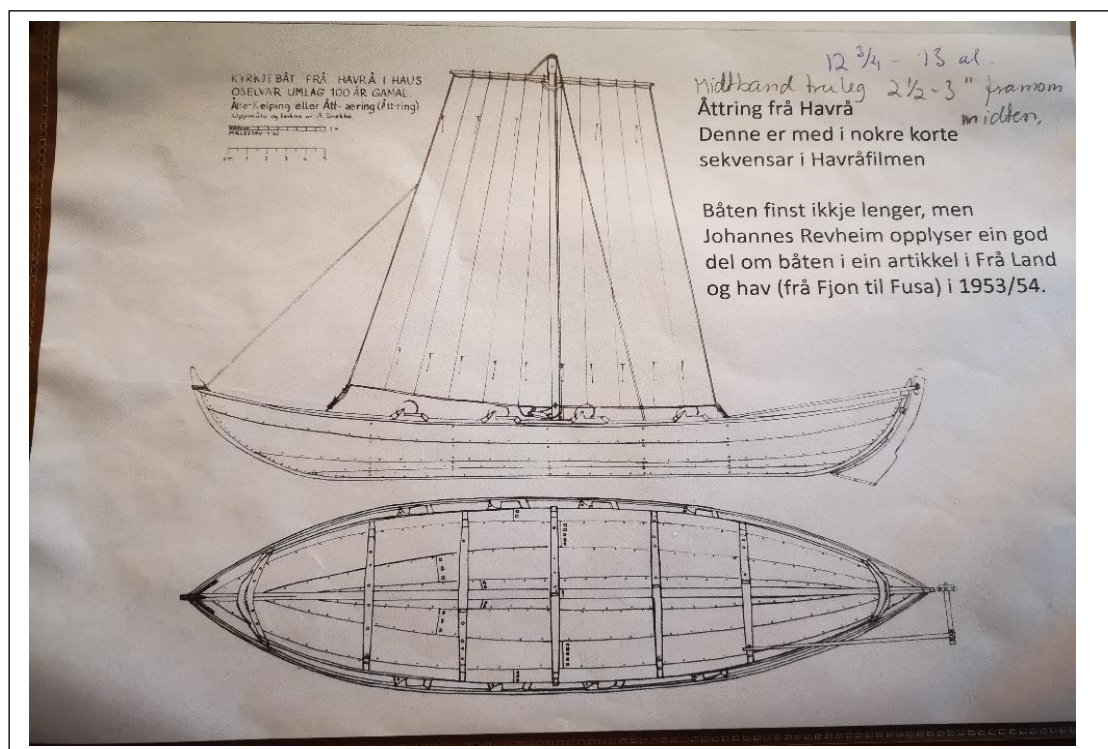 KYRKJEBÅT FRÅ HAVRÅ I HAUS
OSELVAR UMLAG 100 ÅR GAMAL
Åtte-Keiping eller Ått-æring (Åttring)
MÅLESTAV 1:20
1 m
cm 1 2 3 4 5
12 3/4 - 13 al.
Midtband truleg 2 1/2-3" framom
midten.
Åttring frå Havrå
Denne er med i nokre korte
sekvensar i Havråfilmen
Båten finst ikkje lenger, men
Johannes Revheim opplyser ein god
del om båten i ein artikkel i Frå Land
og hav (frå Fjon til Fusa) i 1953/54.